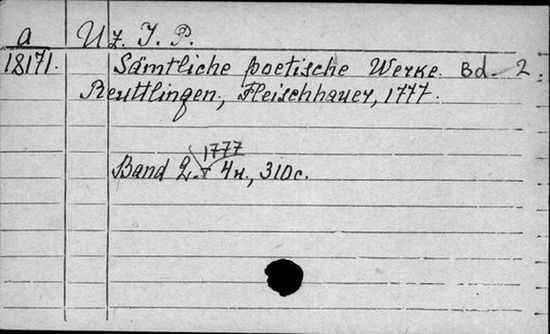 a Uz. J. P.
18171. Sämtliche poetische Werke. Bd 2.
Reuttlingen, Fleischhauer, 1777.
1777
Band 2. 4н., 310с.